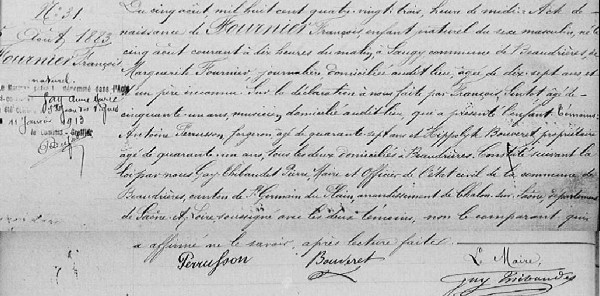 N° 31.
Août 1883
Fournier François
naturel
Gay Anne Marie
11 Janvier 1913
Du cinq août mil huit cent quatre vingt trois, heure de midi. Acte de
naissance de Fournier François, enfant naturel du sexe masculin, né le
cinq août courant à dix heures du matin, à commune de Beaudrières, de
Marguerite Fournier, journalière domiciliée audit lieu, âgée de dix sept ans et
d'un père inconnu. Sur la déclaration à nous faite par François âgé de
cinquante un ans, musicien, domicilié audit lieu, qui a présenté l'enfant. Témoins:
Antoine Perrusson, forgeron âgé de quarante sept ans et Hippolyte Bouveret propriétaire
âgé de quarante un ans, tous les deux domiciliés à Beaudrières. Constaté suivant la
loi par nous Guy Thibaudet Pierre, Maire et Officier de l'état civil de la commune de
Beaudrières, canton de St Germain du Plain, arrondissement de Chalon-sur-Saône, département
de Saône et Loire, soussigné avec les deux témoins, non le comparant qui
a affirmé ne le savoir, après lecture faite.
Perrusson Bouveret Le Maire,
Guy Thibaudet